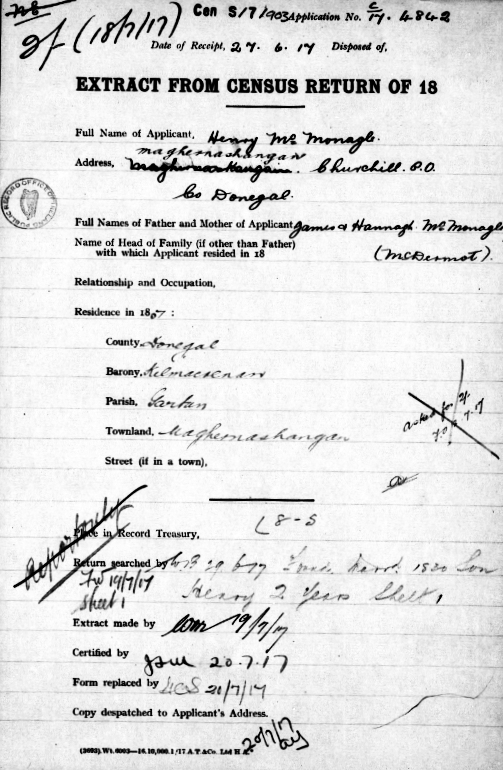 Cen S/17/903 Application No. C/17. 4842
2f (18/7/17)
Date of Receipt, 27. 6. 17 Disposed of,
EXTRACT FROM CENSUS RETURN OF 18
Full Name of Applicant, Henry Mc Monagle.
maghernashangan
Address, Churchill. P.O.
Co Donegal.
PUBLIC RECORD OFFICE OF IRELAND
Full Names of Father and Mother of Applicant James & Hannagh McMonagle
Name of Head of Family (if other than Father)
with which Applicant resided in 18 (McDermot).
Relationship and Occupation,
Residence in 18 :
County, Donegal
Barony, Kilmacrenan
Parish, Gartan
Townland, Maghernashangan
asked for
Street (if in a town),
Place in Record Treasury, 8-S
Report only
Return searched by 29 6/17 Found Marrd. 1830 Son
19/7/17 Henry 2 Years Sheet 1
Sheet 1
Extract made by 19/7/17
Certified by 20.7.17
Form replaced by 20/7/17
Copy despatched to Applicant's Address.
20/7/17
(3603).Wt.6003—16.10,000.1/17.A.T.&Co. Ltd